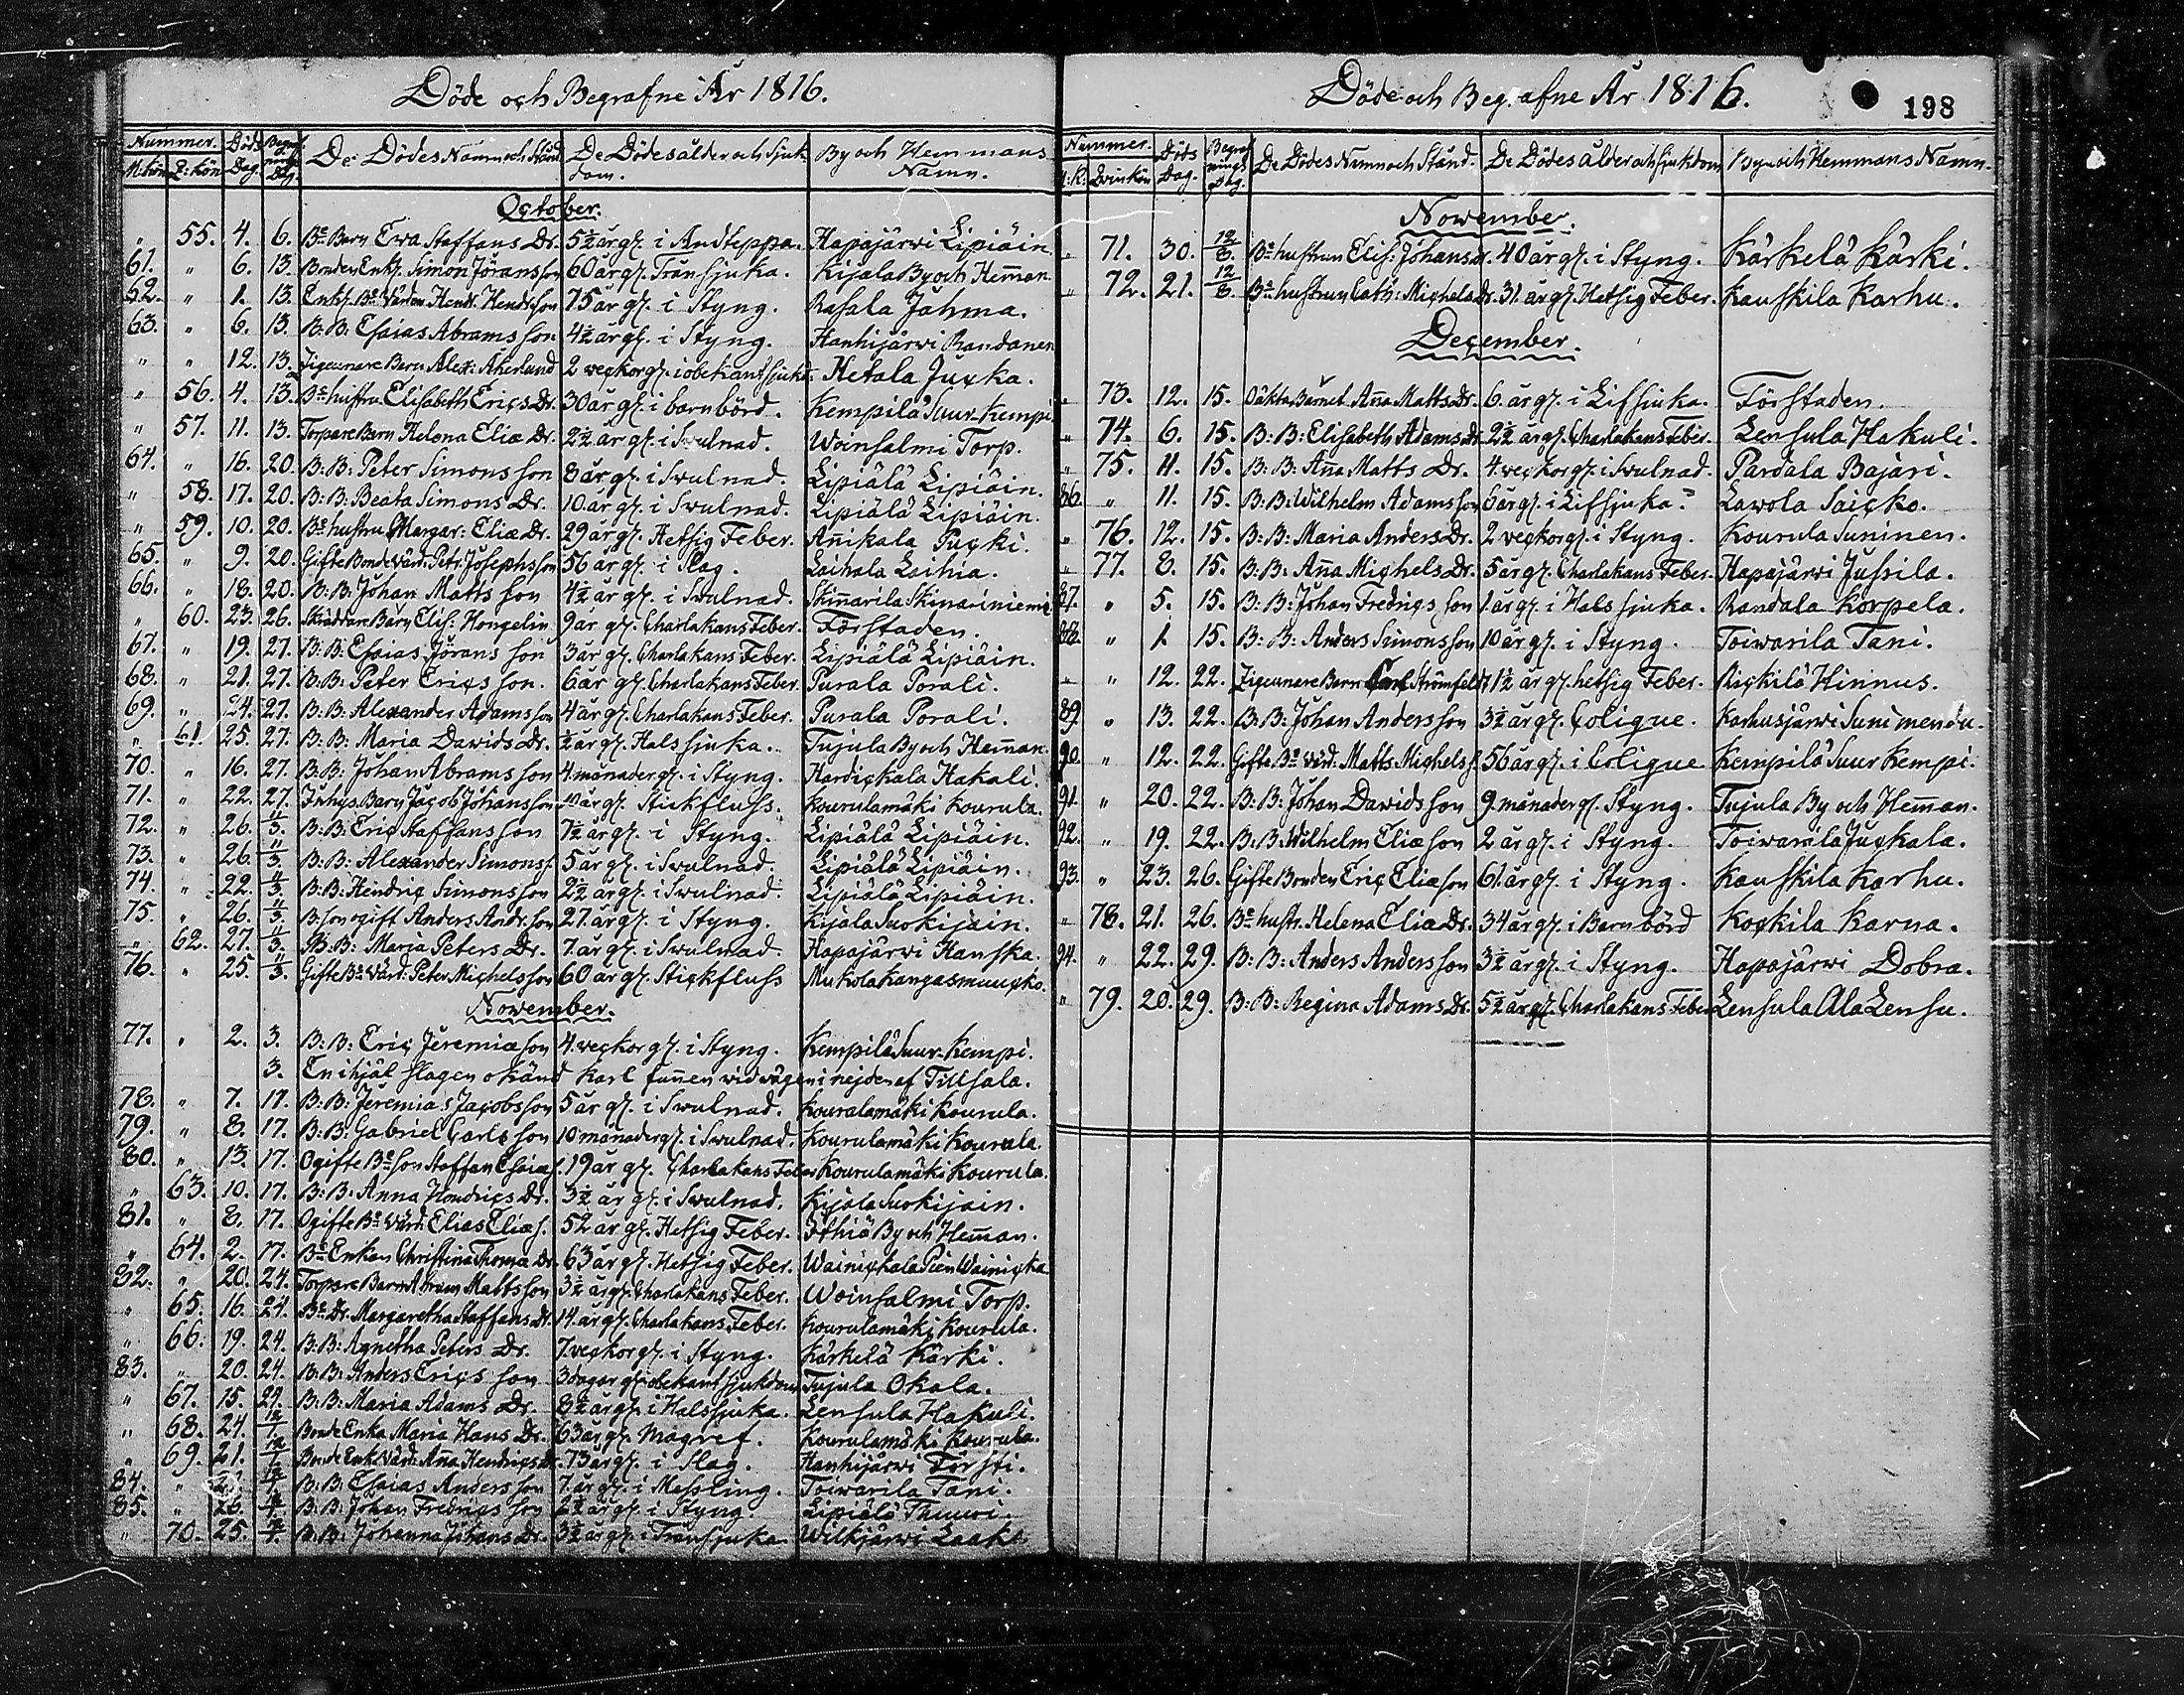 Döde och Begrafne År 1816.
Nummer. Döds Dag. Begrafnings Dag. De Dödes Namn och Stånd De Dödes ålder och Sjukdom. By och Hemmans Namn.
M: kön Q: kön
October.
" 55. 4. 6. Be Barn Ewa Staffans Dr. 5½ år gl. i Andteppa. Hapajärwi Lipiäin.
61. " 6. 13. Bonden Enkl. Simon Jöransson 60 år gl. Trånsjuka. Kijala By och Heman.
62. " 1. 13. Enkl. Be Värden Hendr. Hendrsson 75 år gl. i Styng. Rasala Jahma.
63. " 6. 13. B: B: Esaias Abramsson 4½ år gl. i Styng. Hanhijärwi Randanen
" " 12. 13. Zigeunare Barn Alex: Åkerlund 2 veckor gl. i obekant sjukd. Hetala Jucka.
" 56. 4. 13. Be hustru Elisabeth Erics Dr. 30 år gl. i barnbörd. Kempilä Suur Kempi
" 57. 11. 13. Torpare Barn Helena Eliæ Dr. 2½ år gl. i Svulnad. Woinsalmi Torp.
64. " 16. 20. B: B: Peter Simonsson 8 år gl. i Svulnad. Lipiälä Lipiäin.
" 58. 17. 20. B: B: Beata Simons Dr. 10 år gl. i Svulnad. Lipiälä Lipiäin.
" 59. 10. 20. Be hustru Margar: Eliæ Dr. 29 år gl. Hetsig Feber. Anikala Pucki.
65. " 9. 20. Gifte Bonde Värd: Petr: Josephsson 56 år gl. i Slag. Laihala Laihia.
66. " 18. 20. B: B: Johan Mattsson 4½ år gl. i Svulnad. Skinnarila Skinariniemi
" 60. 23. 26. Skräddare Barn Elis: Hongelin 9 år gl. Charlakans Feber. Förstaden.
67. " 19. 27. B: B: Esaias Jöransson 3 år gl. Charlakans Feber. Lipiälä Lipiäin.
68. " 21. 27. B: B: Peter Ericsson. 6 år gl. Charlakans Feber. Purala Porali.
69. " 24. 27. B: B: Alexander Adamsson 4 år gl. Charlakans Feber. Purala Porali.
" 61. 25. 27. B: B: Maria Dawids Dr. ½ år gl. Halssjuka. Tujula By och Heman.
70. " 16. 27. B: B: Johan Abramsson 4 månader gl. i Styng. Hardickala Hakali.
71. " 22. 27. Inhys Barn Jacob Johansson 10 år gl. Stickfluss. Kourulamäki Kourula.
72. " 26. 11/3. B: B: Eric Staffansson 7½ år gl. i Styng. Lipiälä Lipiäin.
73. " 26. 11/3. B: B: Alexander Simonss. 5 år gl. i Svulnad. Lipiälä Lipiäin.
74. " 22. 11/3. B: B: Hendric Simonsson 2½ år gl. i Svulnad. Lipiälä Lipiäin.
75. " 26. 11/3. B. Son ogift Anders Andr. son 27 år gl. i Styng. Kijala Suokijain.
" 62. 27. 11/3. B: B: Maria Peters Dr. 7 år gl. i Svulnad. Hapajärwi Hanska.
76. " 25. 11/3. Gifte Be Värd. Peter Michelsson 60 år gl. Stickfluss Mukola Kangasmuucko.
November.
77. " 2. 3. B: B: Eric Jeremiæson 4 veckor gl. i Styng. Kempilä Suur-Kempi.
3. En ihjäl slagen okänd Karl funnen vid vägen i nejden af Tillsala.
78. " 7. 17. B: B: Jeremias Jacobsson 5 år gl. i Svulnad. Kourulamäki Kourula.
79. " 8. 17. B: B: Gabriel Carlsson 10 månader gl. i Svulnad. Kourulamäki Kourula.
80. " 13. 17. Ogifte Be Son Staffan Esaias. 19 år gl. Charlakans Feber Kourulamäki Kourula.
" 63. 10. 17. B: B: Anna Hendrics Dr. 3½ år gl. i Svulnad. Kijala Suokijain.
81. " 8. 17. Ogifte Be Värd: Elias Eliæs. 52 år gl. Hetsig Feber. Ithiä By och Heman.
" 64. 2. 17. Be Enkan Christina Thomæ Dr. 63 år gl. Hetsig Feber. Wainickala Pien Wainicka
82. " 20. 24. Torpare Barn Abram Mattsson 3½ år gl. Charlakans Feber. Woinsalmi Torp.
" 65. 16. 24. Be Dr. Margaretha Staffans Dr. 14 år gl. Charlakans Feber. Kourulamäki Kourula.
" 66. 19. 24. B: B: Agnetha Peters Dr. 7 veckor gl. i Styng. Kärkelä Kärki.
83. " 20. 24. B: B: Anders Ericsson 3 dagar gl. i obekant sjukdom Tujula Okala.
" 67. 15. 24. B: B: Maria Adams Dr. 8½ år gl. i Halssjuka. Lensula Hakuli.
" 68. 24. 12/1. Bonde Enka Maria Hans Dr. 63 år gl. Magref. Kourulamäki Kourula.
" 69. 21. 12/1. Bonde Enk. Värd: Anna Hendrics Dr. 73 år gl. i Slag. Hanhijärwi Försti.
84. " 12/1. B: B: Esaias Andersson 7 år gl. i Messling. Toiwarila Tani.
85. " 26. 12/1. B: B: Johan Fredricsson 2½ år gl. i Styng. Lipiälä Thuuri.
" 70. 25. 12/1. B: B: Johanna Johans Dr. 3½ år gl. i Trånsjuka. Wilkjärwi Laaki
Döde och Begrafne År 1816.
198
Nummer. Döds Dag. Begrafnings Dag. De Dödes Namn och Stånd. De Dödes ålder och Sjukdom By och Hemmans Namn.
M: K: Qvinkön
November.
" 71. 30. 12/8. Be hustrun Elis: Johans Dr. 40 år gl. i Styng. Kärkelä Kärki.
" 72. 21. 12/8. Be hustrun Cath: Michels Dr. 31 år gl. Hetsig Feber. Kauskila Karhu.
December.
" 73. 12. 15. Oäkta Barnet Anna Matts Dr. 6 år gl. i Lifsjuka. Förstaden.
" 74. 6. 15. B: B: Elisabeth Adams Dr. 2½ år gl. Charlakans Feber. Lensula Hakuli.
" 75. 11. 15. B: B: Anna Matts Dr. 4 veckor gl. i Svulnad. Pardala Bajari.
86. " 11. 15. B: B: Wilhelm Adamsson 6 år gl. i Lifsjuka. Lawola Saicko.
" 76. 12. 15. B: B: Maria Anders Dr. 2 veckor gl. i Styng. Kourula Suninen.
" 77. 8. 15. B: B: Anna Michels Dr. 5 år gl. Charlakans Feber. Hapajärwi Jussila.
87. " 5. 15. B: B: Johan Fredricsson 1 år gl. i Halssjuka. Randala Korpela.
88. " 1. 15. B: B: Anders Simonsson 10 år gl. i Styng. Toiwarila Tani.
" " 12. 22. Zigeunare Barn Carl Strömfelt 1½ år gl. hetsig Feber. Rickilä Hinnus.
89. " 13. 22. B: B: Johan Andersson 3½ år gl. Colique. Karhusjärwi Sunimendu.
90. " 12. 22. Gifte Be värd: Matts Michelss. 56 år gl. i Colique Kempilä Suur Kempi.
91. " 20. 22. B: B: Johan Dawidsson 9 månader gl. Styng. Tujula By och Heman.
92. " 19. 22. B: B: Wilhelm Eliæson 2 år gl. i Styng. Toiwarila Juckala.
93. " 23. 26. Gifte Bonden Eric Eliæson 61 år gl. i Styng. Kauskila Karhu.
" 78. 21. 26. Be hustr. Helena Eliæ Dr. 34 år gl. i Barnbörd Kockila Karna.
94. " 22. 29. B: B: Anders Andersson 3½ år gl. i Styng. Hapajärwi Dobra.
" 79. 20. 29. B: B: Regina Adams Dr. 5½ år gl. Charlakans Feber Lensula Ala Lensu.